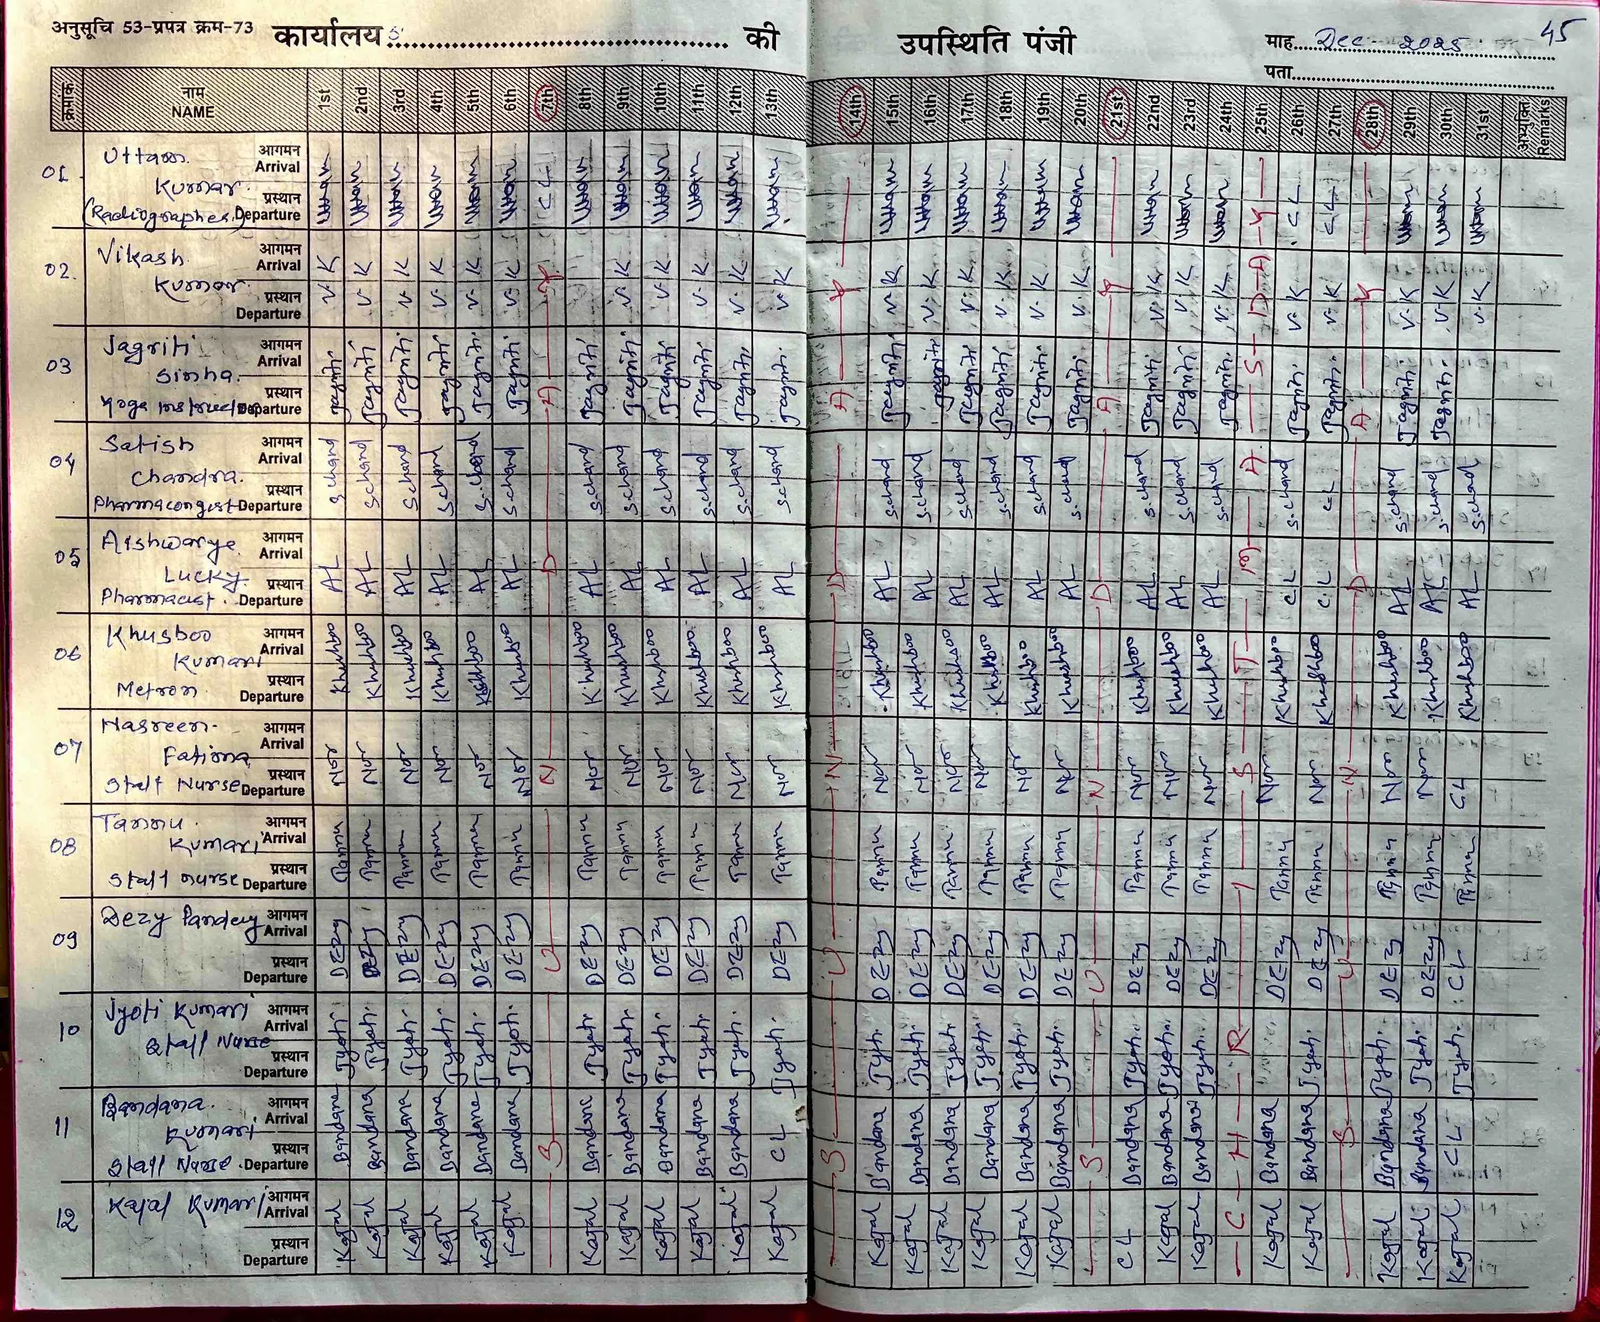 अनुसूचि 53-प्रपत्र क्रम-73 कार्यालय की उपस्थिति पंजी माह Dec 2025 45
पता
क्रमांक नाम NAME 1st 2nd 3rd 4th 5th 6th 7th 8th 9th 10th 11th 12th 13th 14th 15th 16th 17th 18th 19th 20th 21st 22nd 23rd 24th 25th 26th 27th 28th 29th 30th 31st अभ्युक्ति Remarks
01 Uttam Kumar (Radiographer) आगमन Arrival प्रस्थान Departure Uttam Uttam Uttam Uttam Uttam Uttam CL Uttam Uttam Uttam Uttam Uttam Uttam Uttam Uttam Uttam Uttam Uttam Uttam Uttam Uttam Uttam CL CL Uttam Uttam Uttam
02. Vikash Kumar आगमन Arrival प्रस्थान Departure V.K V.K V.K V.K V.K V.K V.K V.K V.K V.K V.K V.K V.K V.K V.K V.K V.K V.K V.K V.K V.K V.K V.K V.K V.K
03 Jagriti Sinha Yoga Instructor आगमन Arrival प्रस्थान Departure Jagriti Jagriti Jagriti Jagriti Jagriti Jagriti Jagriti Jagriti Jagriti Jagriti Jagriti Jagriti Jagriti Jagriti Jagriti Jagriti Jagriti Jagriti Jagriti Jagriti Jagriti Jagriti Jagriti Jagriti Jagriti
04 Satish Chandra. Pharmacongist आगमन Arrival प्रस्थान Departure S.chand S.chand S.chand S.chand S.chand S.chand S.chand S.chand S.chand S.chand S.chand S.chand S.chand S.chand S.chand S.chand S.chand S.chand S.chand S.chand S.chand S.chand CL S.chand S.chand S.chand
05 Aishwarye Lucky Pharmacist. आगमन Arrival प्रस्थान Departure AL AL AL AL AL AL AL AL AL AL AL AL AL AL AL AL AL AL AL AL AL CL CL AL AL AL
06 Khusboo Kumari Metron आगमन Arrival प्रस्थान Departure Khushboo Khushboo Khushboo Khushboo Khushboo Khushboo Khushboo Khushboo Khushboo Khushboo Khushboo Khushboo Khushboo Khushboo Khushboo Khushboo Khushboo Khushboo Khushboo Khushboo Khushboo Khushboo Khushboo Khushboo Khushboo Khushboo
07 Nasreen Fatima Staff Nurse आगमन Arrival प्रस्थान Departure CL
08 Tannu Kumari Staff nurse आगमन Arrival प्रस्थान Departure Tannu Tannu Tannu Tannu Tannu Tannu Tannu Tannu Tannu Tannu Tannu Tannu Tannu Tannu Tannu Tannu Tannu Tannu Tannu Tannu Tannu Tannu Tannu Tannu Tannu Tannu
09 Dezy Pandey आगमन Arrival प्रस्थान Departure DEzy DEzy DEzy DEzy DEzy DEzy DEzy DEzy DEzy DEzy DEzy DEzy DEzy DEzy DEzy DEzy DEzy DEzy DEzy DEzy DEzy DEzy DEzy DEzy DEzy CL
10 Jyoti Kumari Staff Nurse आगमन Arrival प्रस्थान Departure Jyoti Jyoti Jyoti Jyoti Jyoti Jyoti Jyoti Jyoti Jyoti Jyoti Jyoti Jyoti Jyoti Jyoti Jyoti Jyoti Jyoti Jyoti Jyoti Jyoti Jyoti Jyoti Jyoti Jyoti Jyoti
11 Bandana Kumari Staff Nurse. आगमन Arrival प्रस्थान Departure Bandana Bandana Bandana Bandana Bandana Bandana Bandana Bandana Bandana Bandana Bandana CL Bandana Bandana Bandana Bandana Bandana Bandana Bandana Bandana Bandana Bandana Bandana Bandana Bandana CL
12 Kajal Kumari आगमन Arrival प्रस्थान Departure Kajal Kajal Kajal Kajal Kajal Kajal Kajal Kajal Kajal Kajal Kajal Kajal Kajal Kajal Kajal Kajal Kajal Kajal CL Kajal Kajal Kajal Kajal Kajal Kajal Kajal
SUNDAY
SUNDAY
SUNDAY
CHRISTMAS DAY
SUNDAY